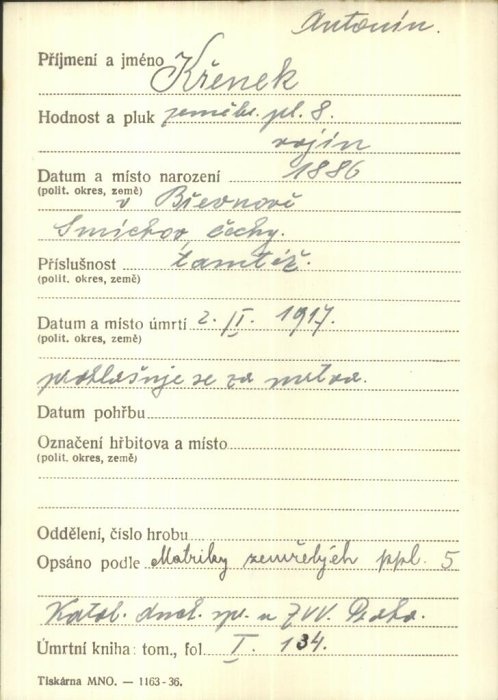 Antonín.
Příjmení a jméno Křenek
Hodnost a pluk zeměbr. pl. 8.
vojín
Datum a místo narození 1886
(polit. okres, země) v Břevnově
Smíchov, Čechy.
Příslušnost tamtéž.
(polit. okres, země)
Datum a místo úmrtí 2. II. 1917.
(polit. okres, země)
prohlašuje se za mrtva.
Datum pohřbu
Označení hřbitova a místo
(polit. okres, země)
Oddělení, číslo hrobu
Opsáno podle Matriky zemřelých ppl. 5
Katol. duch. spr. u ZVV. Praha.
Úmrtní kniha: tom., fol. I. 134.
Tiskárna MNO. — 1163-36.